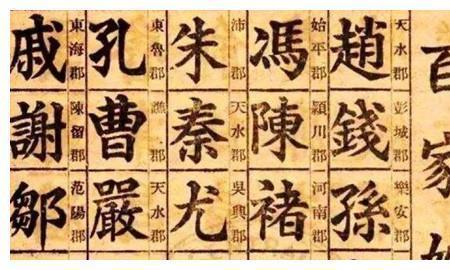 百家姓
天水郡 彭城郡 樂安郡
趙錢孫
始平郡 潁川郡 河南郡
馮陳褚
沛郡 天水郡 吳興郡
朱秦尤
東魯郡 譙郡 天水郡
孔曹嚴
東海郡 陳留郡 范陽郡
戚謝鄒